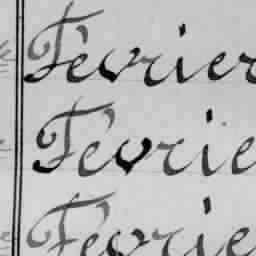 Février
Février
Février